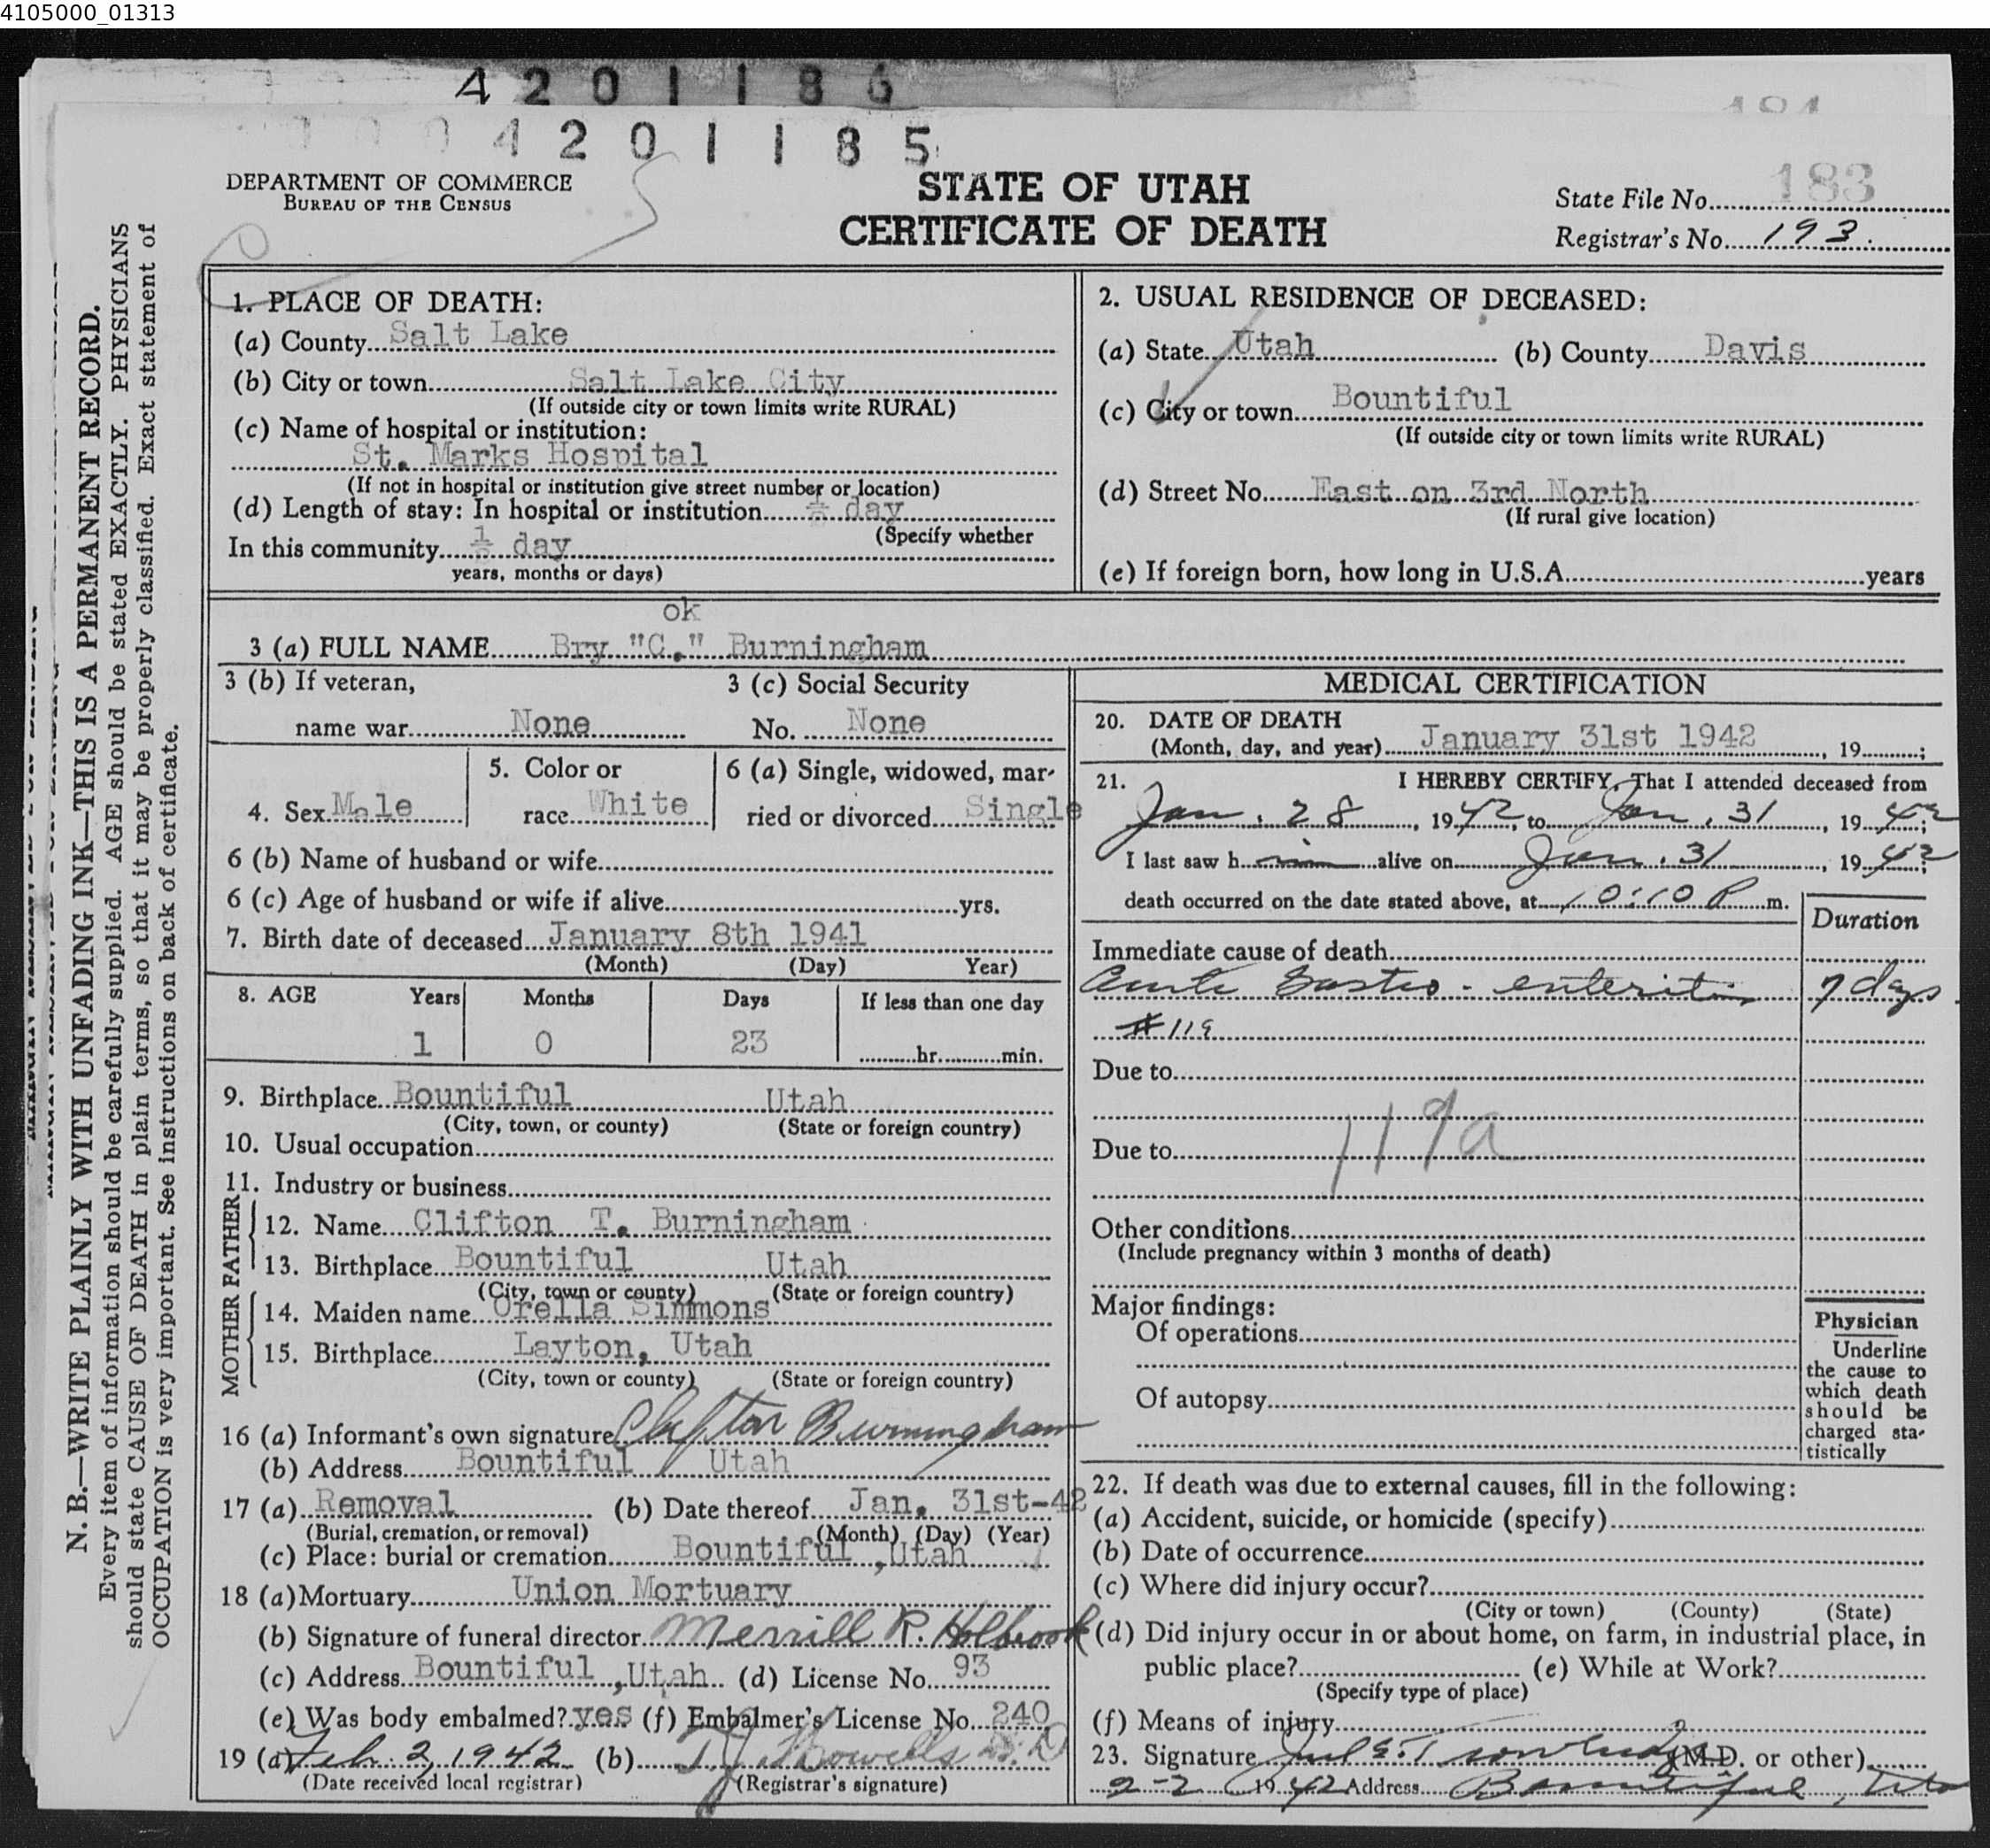 4105000_01313
4 2 0 1 1 8 6
4 2 0 1 1 8 5
DEPARTMENT OF COMMERCE
BUREAU OF THE CENSUS
STATE OF UTAH
CERTIFICATE OF DEATH
State File No. 183
Registrar's No. 193.
N. B.—WRITE PLAINLY WITH UNFADING INK—THIS IS A PERMANENT RECORD.
Every item of information should be carefully supplied. AGE should be stated EXACTLY. PHYSICIANS
should state CAUSE OF DEATH in plain terms, so that it may be properly classified. Exact statement of
OCCUPATION is very important. See instructions on back of certificate.
1. PLACE OF DEATH:
(a) County Salt Lake
(b) City or town Salt Lake City
(If outside city or town limits write RURAL)
(c) Name of hospital or institution:
St. Marks Hospital
(If not in hospital or institution give street number or location)
(d) Length of stay: In hospital or institution ½ day
(Specify whether
In this community ½ day
years, months or days)
2. USUAL RESIDENCE OF DECEASED:
(a) State Utah (b) County Davis
(c) City or town Bountiful
(If outside city or town limits write RURAL)
(d) Street No. East on 3rd North
(If rural give location)
(e) If foreign born, how long in U.S.A. years
ok
3 (a) FULL NAME Bry "C." Burningham
3 (b) If veteran,
name war None
3 (c) Social Security
No. None
4. Sex Male
5. Color or
race White
6 (a) Single, widowed, mar-
ried or divorced Single
6 (b) Name of husband or wife
6 (c) Age of husband or wife if alive yrs.
7. Birth date of deceased January 8th 1941
(Month) (Day) Year)
8. AGE Years Months Days If less than one day
1 0 23 hr. min.
9. Birthplace Bountiful Utah
(City, town, or county) (State or foreign country)
10. Usual occupation
11. Industry or business
FATHER
12. Name Clifton T. Burningham
13. Birthplace Bountiful Utah
(City, town or county) (State or foreign country)
MOTHER
14. Maiden name Orella Simmons
15. Birthplace Layton, Utah
(City, town or county) (State or foreign country)
16 (a) Informant's own signature Clifton Burningham
(b) Address Bountiful Utah
17 (a) Removal (b) Date thereof Jan. 31st-42
(Burial, cremation, or removal) (Month) (Day) (Year)
(c) Place: burial or cremation Bountiful ,Utah
18 (a) Mortuary Union Mortuary
(b) Signature of funeral director Merrill R. Holbrook
(c) Address Bountiful ,Utah (d) License No. 93
(e) Was body embalmed? yes (f) Embalmer's License No. 240
19 (a) Feb. 2, 1942 (b) Howells M.D
(Date received local registrar) (Registrar's signature)
MEDICAL CERTIFICATION
20. DATE OF DEATH
(Month, day, and year) January 31st 1942, 19 ;
21. I HEREBY CERTIFY, That I attended deceased from
Jan. 28, 1942, to Jan. 31, 1942;
I last saw him alive on Jan. 31, 1942;
death occurred on the date stated above, at 10:10 P m.
Duration
Immediate cause of death
Acute Gastro-enteritis 7 days
#119
Due to
119a
Due to
Other conditions
(Include pregnancy within 3 months of death)
Major findings:
Of operations
Of autopsy
Physician
Underline
the cause to
which death
should be
charged sta-
tistically
22. If death was due to external causes, fill in the following:
(a) Accident, suicide, or homicide (specify)
(b) Date of occurrence
(c) Where did injury occur?
(City or town) (County) (State)
(d) Did injury occur in or about home, on farm, in industrial place, in
public place? (e) While at Work?
(Specify type of place)
(f) Means of injury
23. Signature Trowbridge (M.D. or other)
2-2 1942 Address Bountiful, Utah